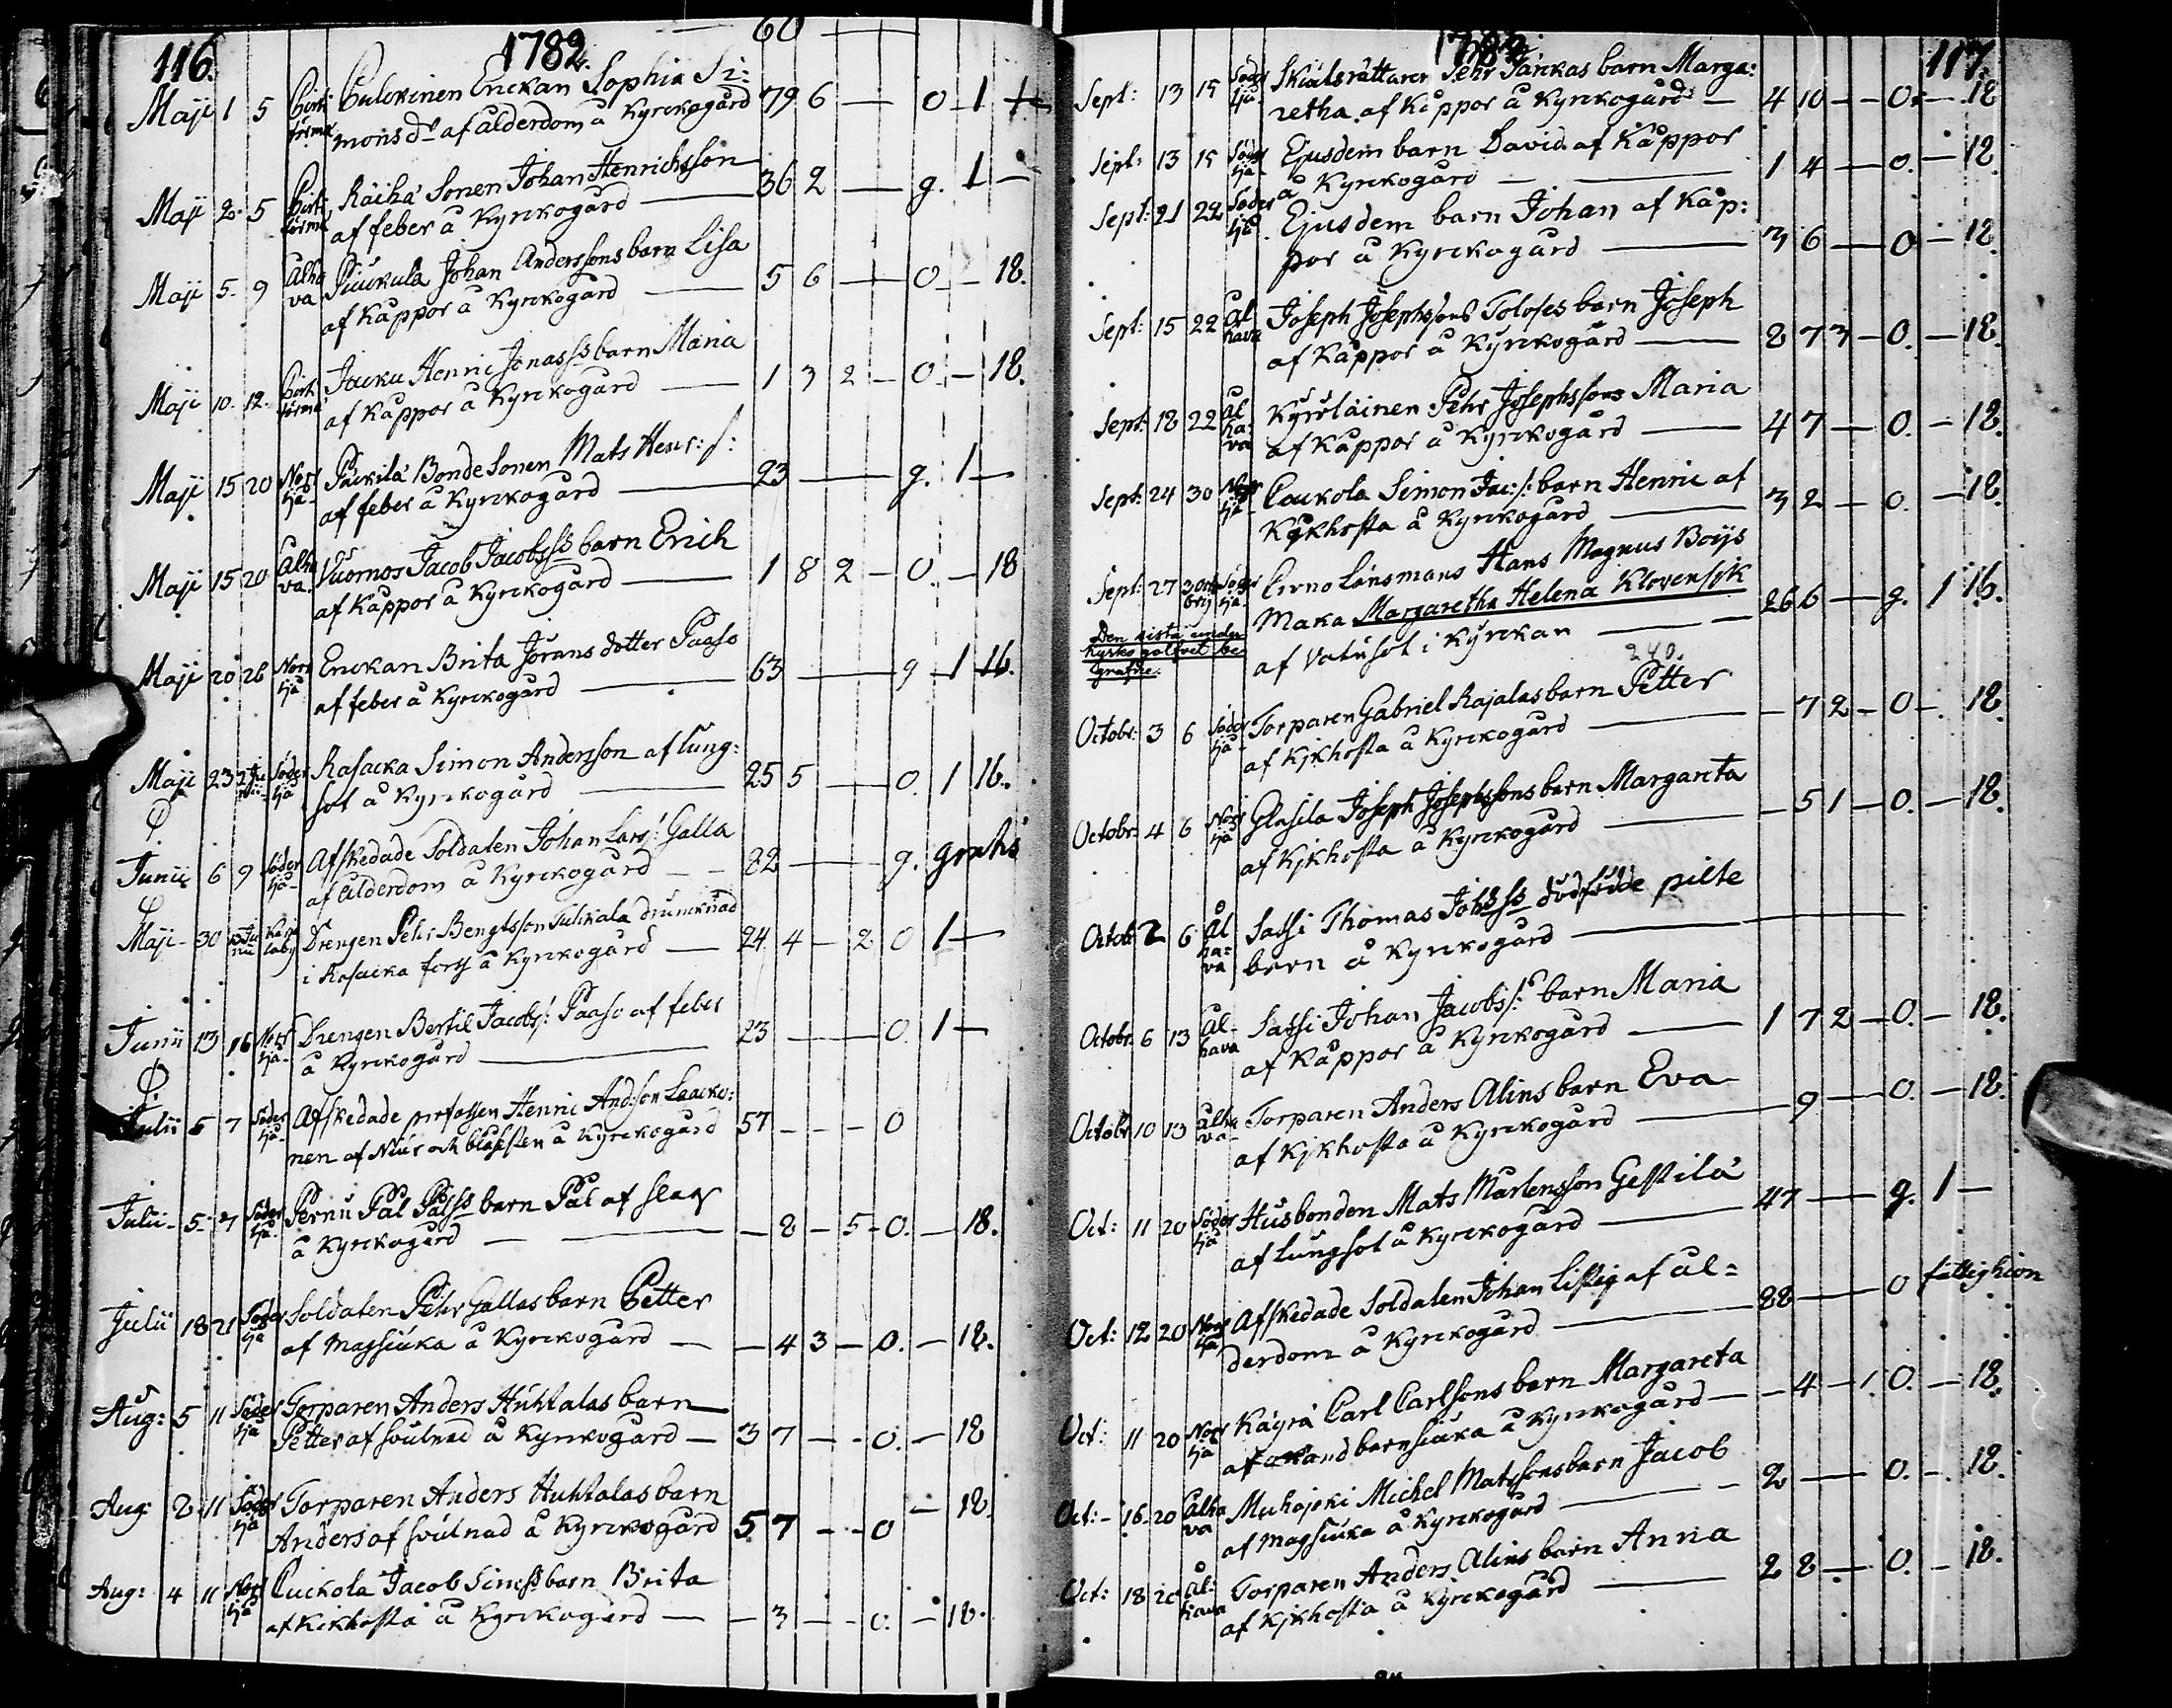 116. 1782. 60
Maji 1 5 Pulckinen Enckan Sophia Si:
monsdr af ålderdom å Kyrckogård 79 6 — 0 1
Maji 2 5 Räihä Sonen Johan Henrichsson
af feber å Kyrckogård — 36 2 — g. 1 —
Maji 5 9 Alha Johan Anderssons barn Lisa
va af Kåppor å Kyrckogård — 5 6 — 0 — 18.
Maji 10. 12. Jacku Henric Jonass barn Maria
af Kåppor å Kyrckogård — 1 3 2 — 0 — 18.
Maji 15 20 Norr Päckilä Bonde Sonen Mats Henr: s:
sjä af feber å Kyrckogård — 23 — g. 1 —
Maji 15 20 Alha Vuornos Jacob Jacobss barn Erich
va. af Kåppor å Kyrckogård — 1 8 2 — 0. — 18
Maji 20 26 Norr Enckan Brita Jörans dotter Paaso
sjä af feber å Kyrckogård — 63 — g 1 16.
Maji 23 Söder Rasacka Simon Andersson af lung:
sjä sot å Kyrckogård — 25 5 — 0. 1 16.
Junii 6 9 Söder Afskedade Soldaten Johan Lars: Galla
sjä af ålderdom å Kyrckogård — 82 — g. gratis
Maji 30 Drengen Pehr Bengtsson Tulckala drunknad
laby i Rasacka fors å Kyrckogård — 24 4 — 2 0 1 —
Junii 13 16 Norr Drengen Bertil Jacobs: Paaso af feber
sjä å Kyrckogård — 23 — 0. 1 —
Julii 5 7 Söder Afskedade Henric Andsson Laacko:
sjä nen af Niur och blåssten å Kyrckogård 57 - - - 0
Julii 5 7 Söder Pernu Pål Pålss barn Pål af slag
sjä å Kyrckogård — 8 - 5 - 0. — 18.
Julii 18 21 Söder Soldaten Pehr Gallas barn Petter
sjä af Magsiuka å Kyrckogård — 4 3 — 0. — 18.
Aug: 5 11 Söder Torparen Anders Huhtalas barn
sjä Petter af svulnad å Kyrckogård — 3 7 — 0. — 18
Aug 8 11 Söder Torparen Anders Huhtalas barn
sjä Anders af svulnad å Kyrckogård 5 7 — 0 — 18
Aug: 4 11 Norr Jacob Simss barn Brita
sjä af Kikhosta å Kyrckogård — 3 — 0. — 18.
1782. 117.
Sept: 13 15 Söder Skiutsrättaren Pehr barn Marga:
sjä retha af Kåppor å Kyrckogård — 4 10 — 0 — 18
Sept: 13 15 Söder Ejusdem barn David af Kåppor
sjä å Kyrckogård — 1 4 — 0. — 18.
Sept: 21 22 Söder Ejusdem barn Johan af Kåp:
sjä por å Kyrckogård — 3 6 — 0 — 18.
Sept: 15 22 Al Joseph Josephsons Toloses barn Joseph
hava af Kåppor å Kyrckogård — 2 7 3 — 0. — 18.
Sept: 18 22 Al Kyröläinen Pehr Josephssons Maria
ha: af Kåppor å Kyrckogård — 4 7 — 0. — 18.
va
Sept: 24 30 Norr Simon Jac: s: barn Henric af
sjä Kikhosta å Kyrckogård — 3 2 — 0. — 18.
Sept: 27 Söder Hans Magnus Boijs
sjä Maka Margaretha Helena
af Vatusot i Kyrckan — 26 6 — g. 1 16.
Den sista under
kyrkogolfvet be
grafne. 240.
Octobr: 3 6 Söder Torparen Gabriel Rajalas barn Petter
sjä af Kikhosta å Kyrckogård — 7 2 — 0 — 18.
Octobr: 4 6 Norr Joseph Josephssons barn Margareta
sjä af Kikhosta å Kyrckogård — 5 1 — 0. — 18.
Octobr 2 6 Al Sassi Thomas Johss dödfödde pilte
ha= barn å Kyrckogård —
va
Octobr 6 13 Al Sassi Johan Jacobs: barn Maria
hava af Kåppor å Kyrckogård — 1 7 2 — 0. — 18.
Octobr 10 13 Alha Torparen Anders Alins barn Eva
va af Kikhosta å Kyrckogård — 9 — 0. — 18.
Oct: 11 20 Söder Husbonden Mats Mårtensson Gestilä
sjä af lungsot å Kyrckogård — 47 — g. 1 —
Oct: 12 20 Norr Afskedade Soldaten Johan Listig af ål=
sjä derdom å Kyrckogård — 88 — 0 fattighion
Oct: 11 20 Norr Käyrä Carl Carlsons barn Margareta
sjä af barnsiuka å Kyrckogård — 4 — 1. 0. — 18.
Oct: 16 20 Alha Muhajoki Michel Matssons barn Jacob
va af Magsiuka å Kyrckogård — 2 — 0. — 18.
Oct: 18 20 Al: Torparen Anders Alins barn Anna
hava af Kikhosta å Kyrckogård — 2 8 — 0. — 18.